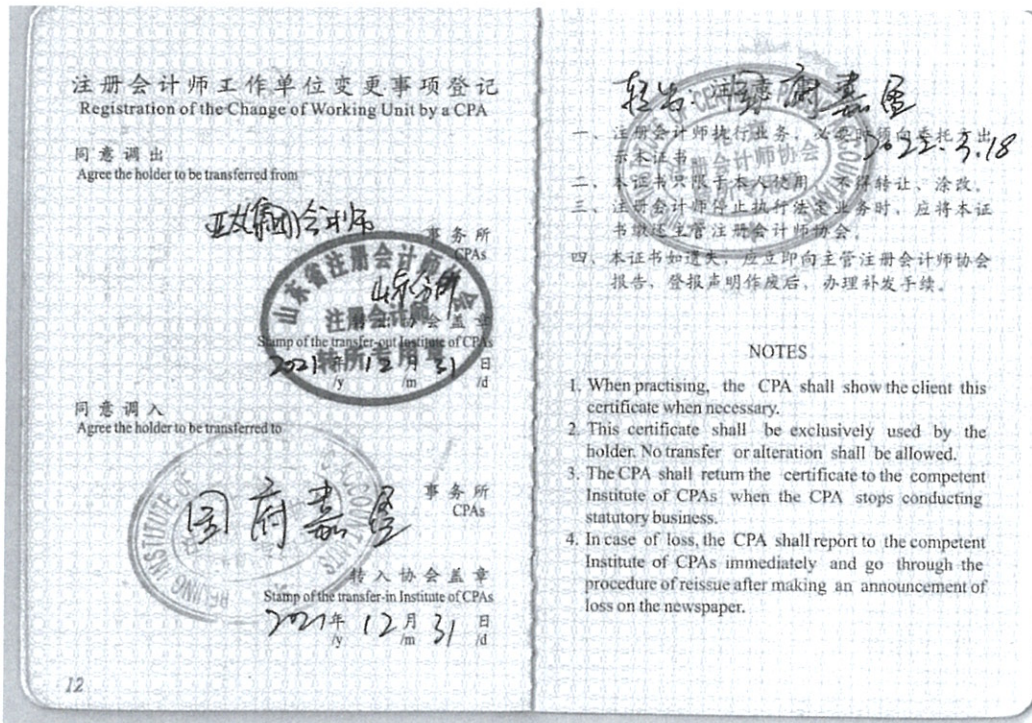 注册会计师工作单位变更事项登记
Registration of the Change of Working Unit by a CPA
同意调出
Agree the holder to be transferred from
集团会计师
事务所
CPAs
山东分所
山东省注册会计师协会
注册会计师
转所专用章
协会盖章
Stamp of the transfer-out Institute of CPAs
2021年 12月 31日
/y /m /d
同意调入
Agree the holder to be transferred to
BEIJING INSTITUTE OF
国府嘉盈
事务所
CPAs
转入协会盖章
Stamp of the transfer-in Institute of CPAs
2021年 12月 31日
/y /m /d
12
国府嘉盈
2022.3.18
一、注册会计师执行业务，必要时须向委托方出
示本证书。
二、本证书只限于本人使用，不得转让、涂改。
三、注册会计师停止执行法定业务时，应将本证
书缴还主管注册会计师协会。
四、本证书如遗失，应立即向主管注册会计师协会
报告，登报声明作废后，办理补发手续。
NOTES
1. When practising, the CPA shall show the client this
certificate when necessary.
2. This certificate shall be exclusively used by the
holder. No transfer or alteration shall be allowed.
3. The CPA shall return the certificate to the competent
Institute of CPAs when the CPA stops conducting
statutory business.
4. In case of loss, the CPA shall report to the competent
Institute of CPAs immediately and go through the
procedure of reissue after making an announcement of
loss on the newspaper.